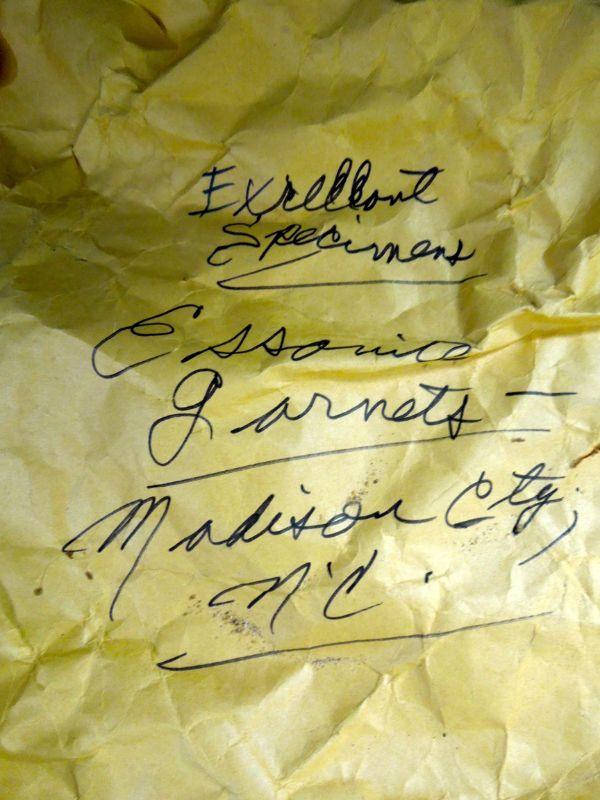 Excellent
Specimens
Essonite
Garnets —
Madison Cty,
N.C.